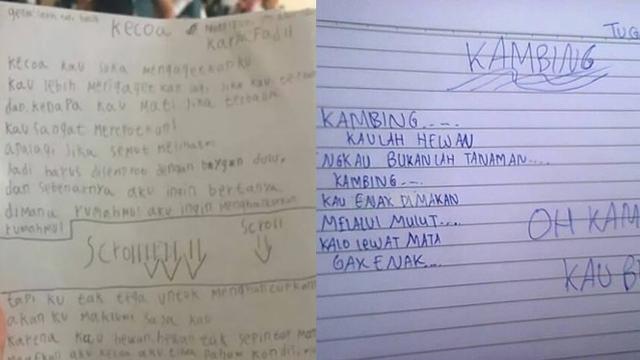 kecoa
Karya Fadil
kecoa kau suka mengagetkanku
kau lebih mengagetkan lagi jika kau
dan kenapa kau mati jika terbalik
kau sangat merepotkan!
apalagi jika semut melihatmu
Jadi harus disemprot dengan baygon dulu,
dan sebenarnya aku ingin bertanya
dimana rumahmu! aku ingin menghancurkan
rumahmu!
Scroll
Scrollllllll
tapi ku tak tega untuk menghancurkan
akan ku maklumi saja kau
karena kau hewan, hewan tak sepintar
TUG
KAMBING
KAMBING....
KAULAH HEWAN
NGKAU BUKANLAH TANAMAN....
KAMBING....
KAU ENAK DIMAKAN
MELALUI MULUT....
KALO LEWAT MATA
GAK ENAK...
OH KAM
KAU B